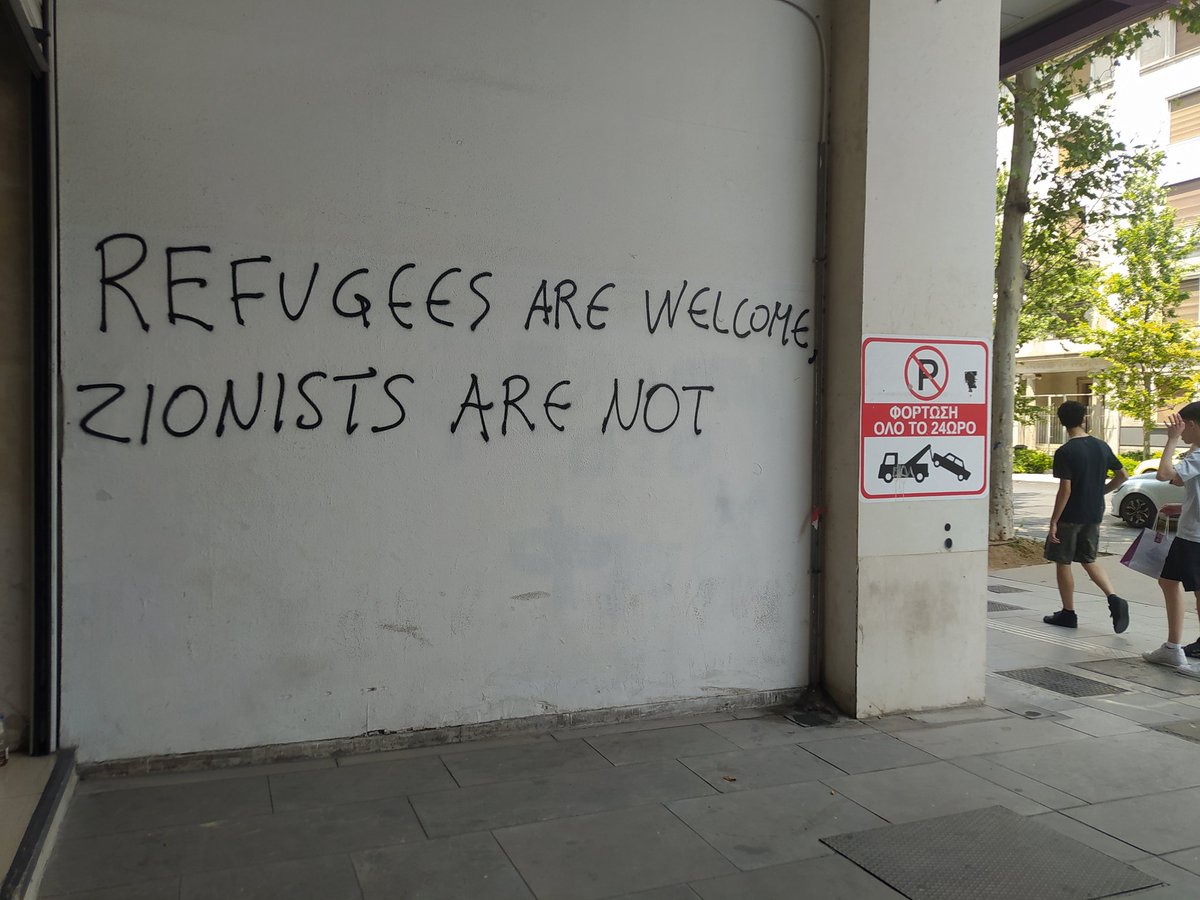 REFUGEES ARE WELCOME,
ZIONISTS ARE NOT
P
ΦΟΡΤΩΣΗ
ΟΛΟ ΤΟ 24ΩΡΟ